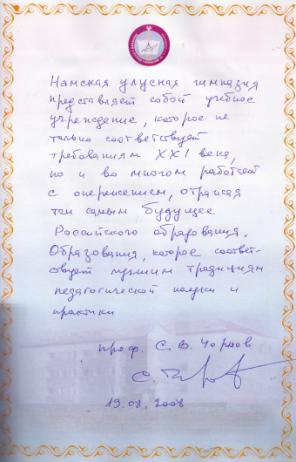 Намская улусная гимназия
представляет собой учебное
учреждение, которое не
только соответствует
требованиям XXI века,
но и во многом работает
с опережением, отражая
тем самым будущее
Российского образования.
Образования, которое соответ-
свует лучшим традициям
педагогической науки и
практики
проф. С. В. Чернов
19.08.2008